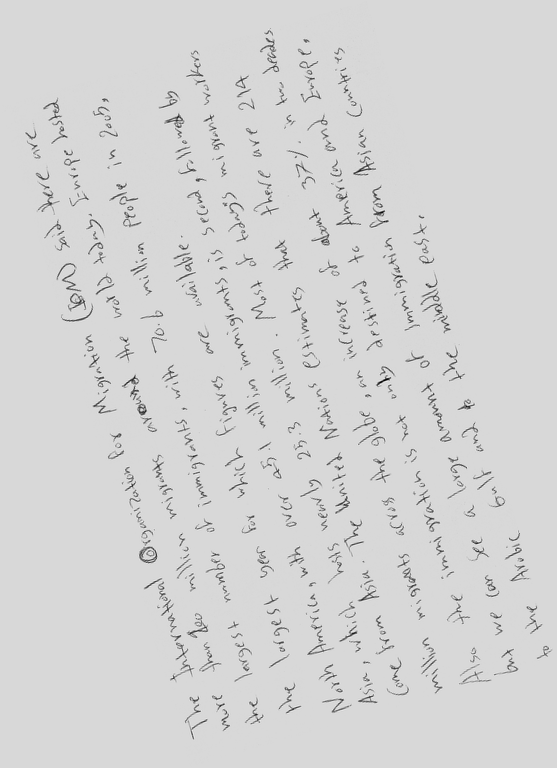 The International Organization for Migration (IOM) said there are
more than 200 million migrants around the world today. Europe hosted
the largest number of immigrants, with 70.6 million people in 2005,
the largest year for which figures are available.
North America, with over 45.1 million immigrants, is second, followed by
Asia, which hosts nearly 25.3 million. Most of today's migrant workers
come from Asia. The United Nations estimates that there are 214
million migrants across the globe, an increase of about 37% in two decades
Also the immigration is not only destined to America and Europe,
but we can see a large amount of immigration from Asian countries
to the Arabic Gulf and to the middle east.